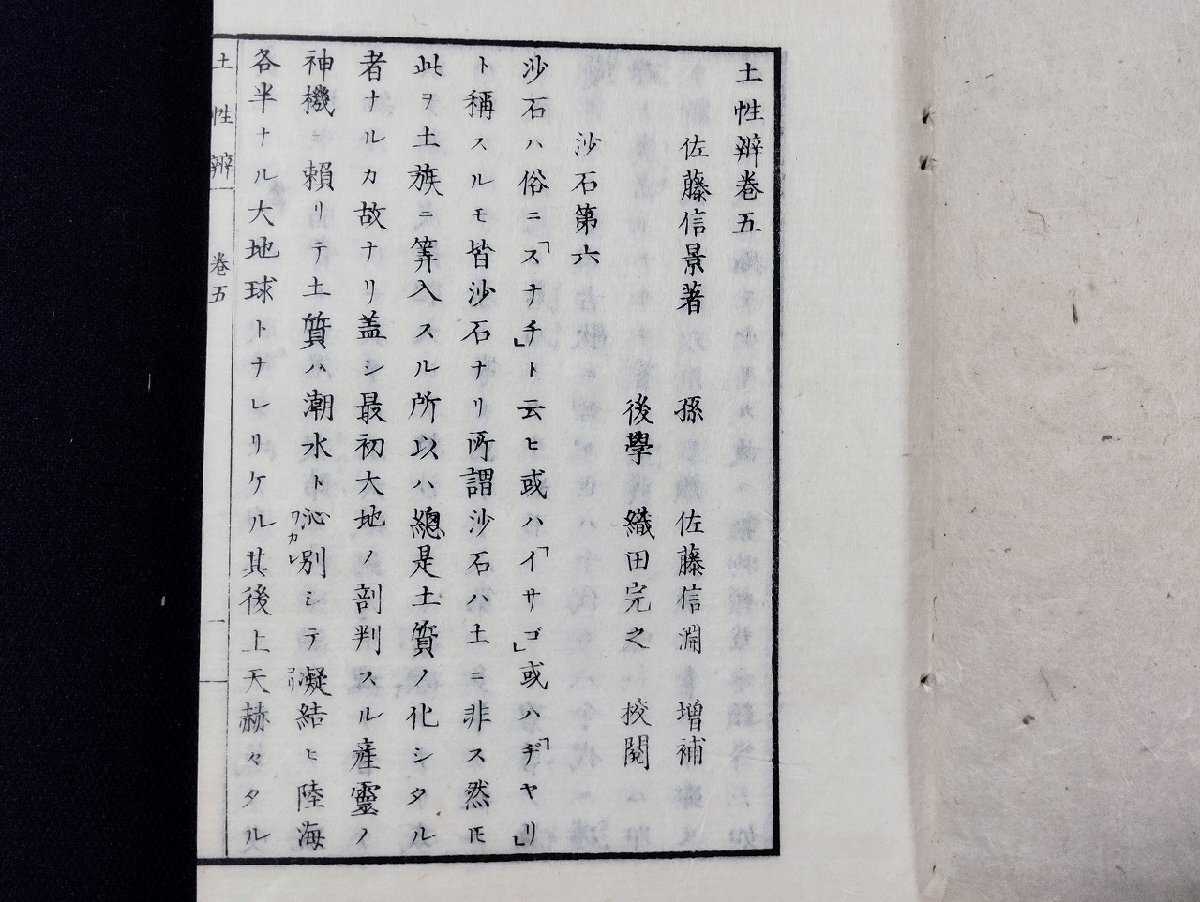 土性辨卷五
佐藤信景著 孫 佐藤信淵 增補
後學 織田完之 挍閲
沙石第六
沙石ハ俗ニ「スナチ」ト云ヒ或ハ「イサゴ」或ハ「ヂヤリ」
ト稱スルモ皆沙石ナリ所謂沙石ハ土ニ非ス然ㇳモ
此ヲ土族ニ筭入スル所以ハ總是土質ノ化シタル
者ナルカ故ナリ蓋シ最初大地ノ剖判スル產靈ノ
神機ニ賴リテ土質ハ潮水ト沁別シテ凝結ヒ陸海
ワカレ
コリ
各半ナル大地球トナレリケル其後上天赫々タル
土性辨 卷五 一